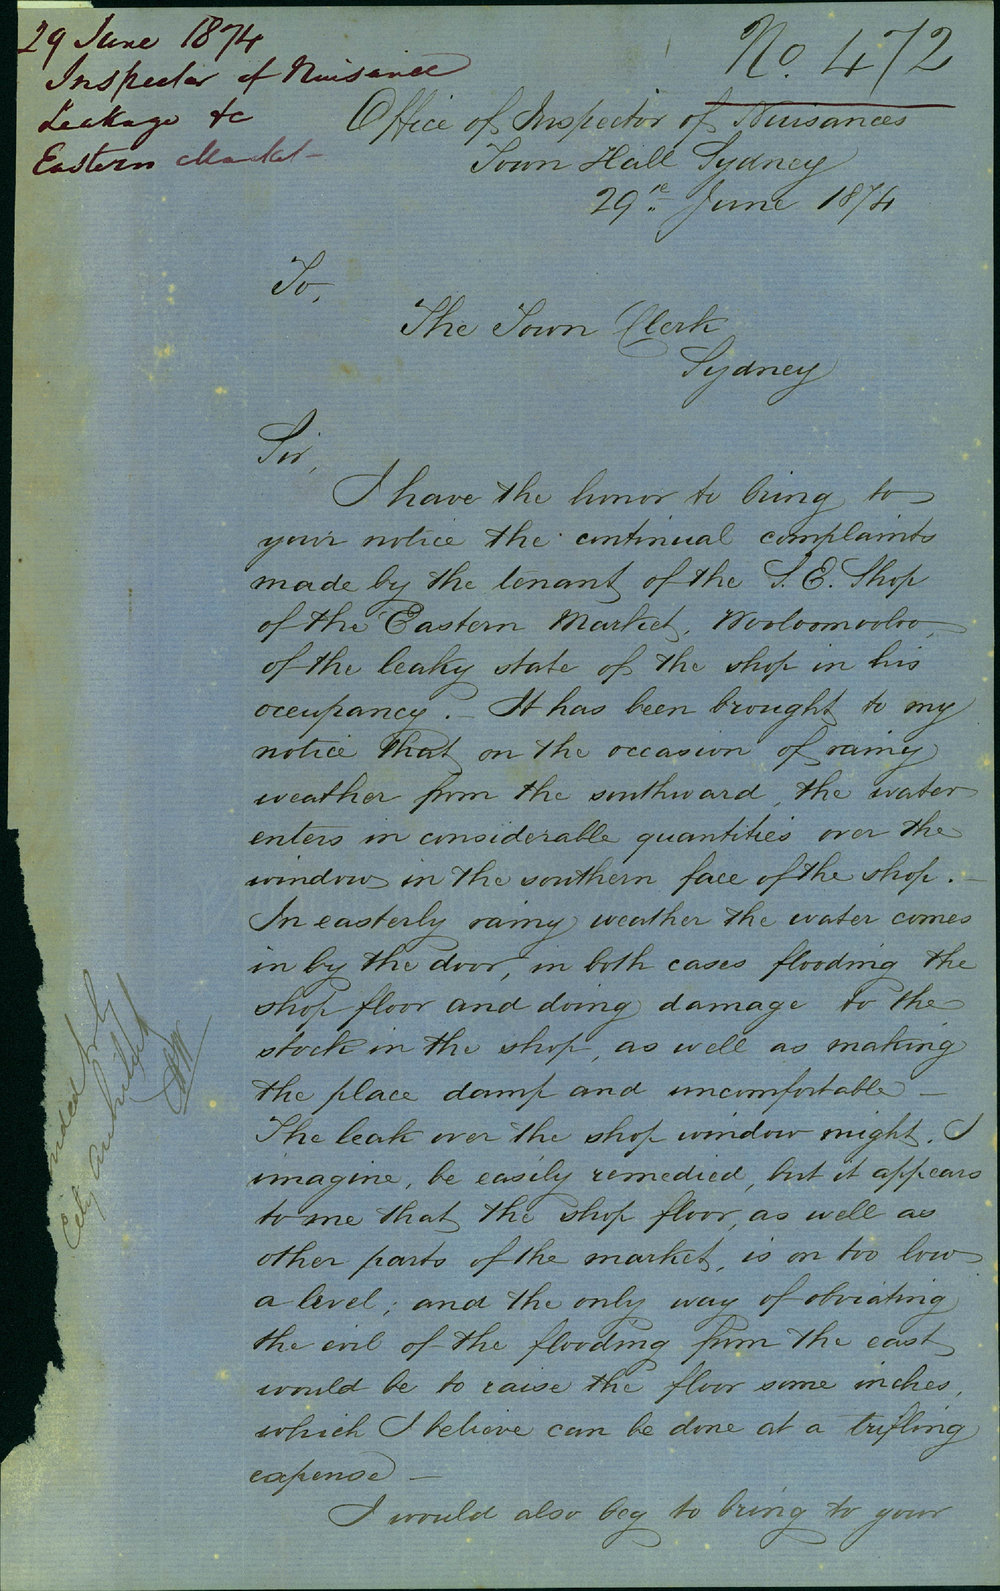 29 June 1874
Inspector of Nuisance
Leakage &c
Eastern Market -
No. 472
Office of Inspector of Nuisances
Town Hall Sydney
29th June 1874
To,
The Town Clerk
Sydney
Sir,
I have the honor to bring to
your notice the continual complaints
made by the tenant of the S. E. Shop
of the Eastern Market, Wooloomooloo,
of the leaky state of the shop in his
occupancy. - It has been brought to my
notice that on the occasion of rainy
weather from the southward, the water
enters in considerable quantities over the
window in the southern face of the shop. -
In easterly rainy weather the water comes
in by the door, in both cases flooding the
shop floor and doing damage to the
stock in the shop, as well as making
the place damp and uncomfortable -
The leak over the shop window might, I
imagine, be easily remedied, but it appears
to me that the shop floor, as well as
other parts of the market, is on too low
a level; and the only way of obviating
the evil of the flooding from the east
would be to raise the floor some inches,
which I believe can be done at a trifling
expense -
I would also beg to bring to your
City Architect